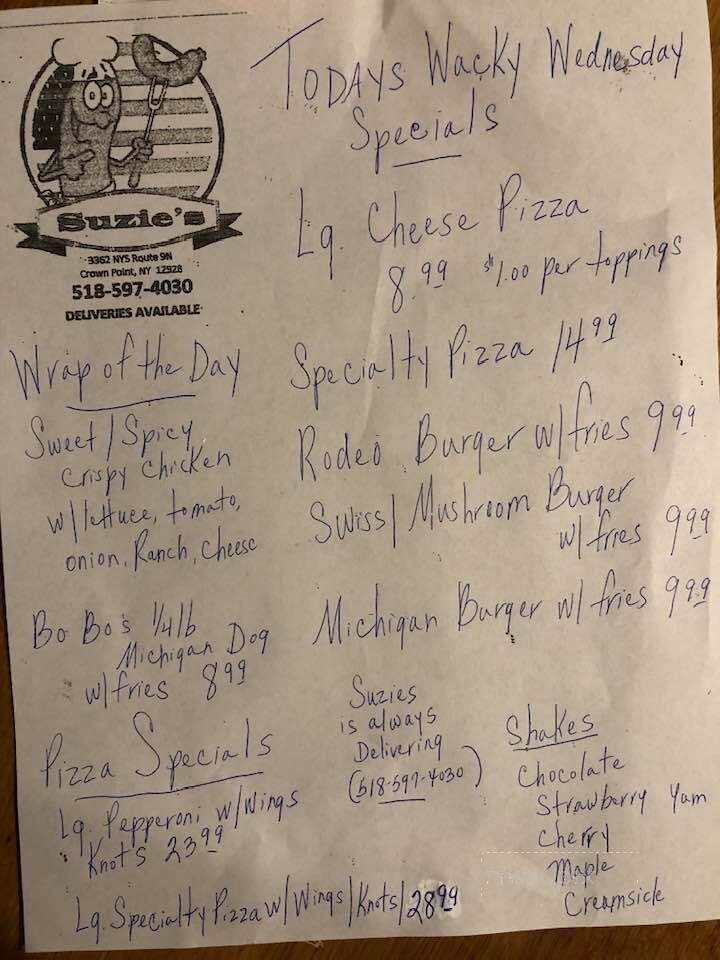 Suzie's
3362 NYS Route 9N
Crown Point, NY 12928
518-597-4030
DELIVERIES AVAILABLE
TODAYS Wacky Wednesday
Specials
Lg. Cheese Pizza
8.99 $1.00 per toppings
Specialty Pizza 14 99
Rodeo Burger w/fries 9 99
Swiss/Mushroom Burger
w/fries 9 99
Michigan Burger w/ fries 9 99
Wrap of the Day
Sweet/Spicy
Crispy Chicken
w/lettuce, tomato,
onion, Ranch, Cheese
Bo Bo's 1/4 lb
Michigan Dog
w/fries 8 99
Pizza Specials
Lg. Pepperoni w/Wings
Knots 23 99
Lg. Specialty Pizza w/Wings/Knots/28 99
Suzies
is always
Delivering
(518-597-4030)
Shakes
Chocolate
Strawberry Yum
Cherry
Maple
Creamsicle